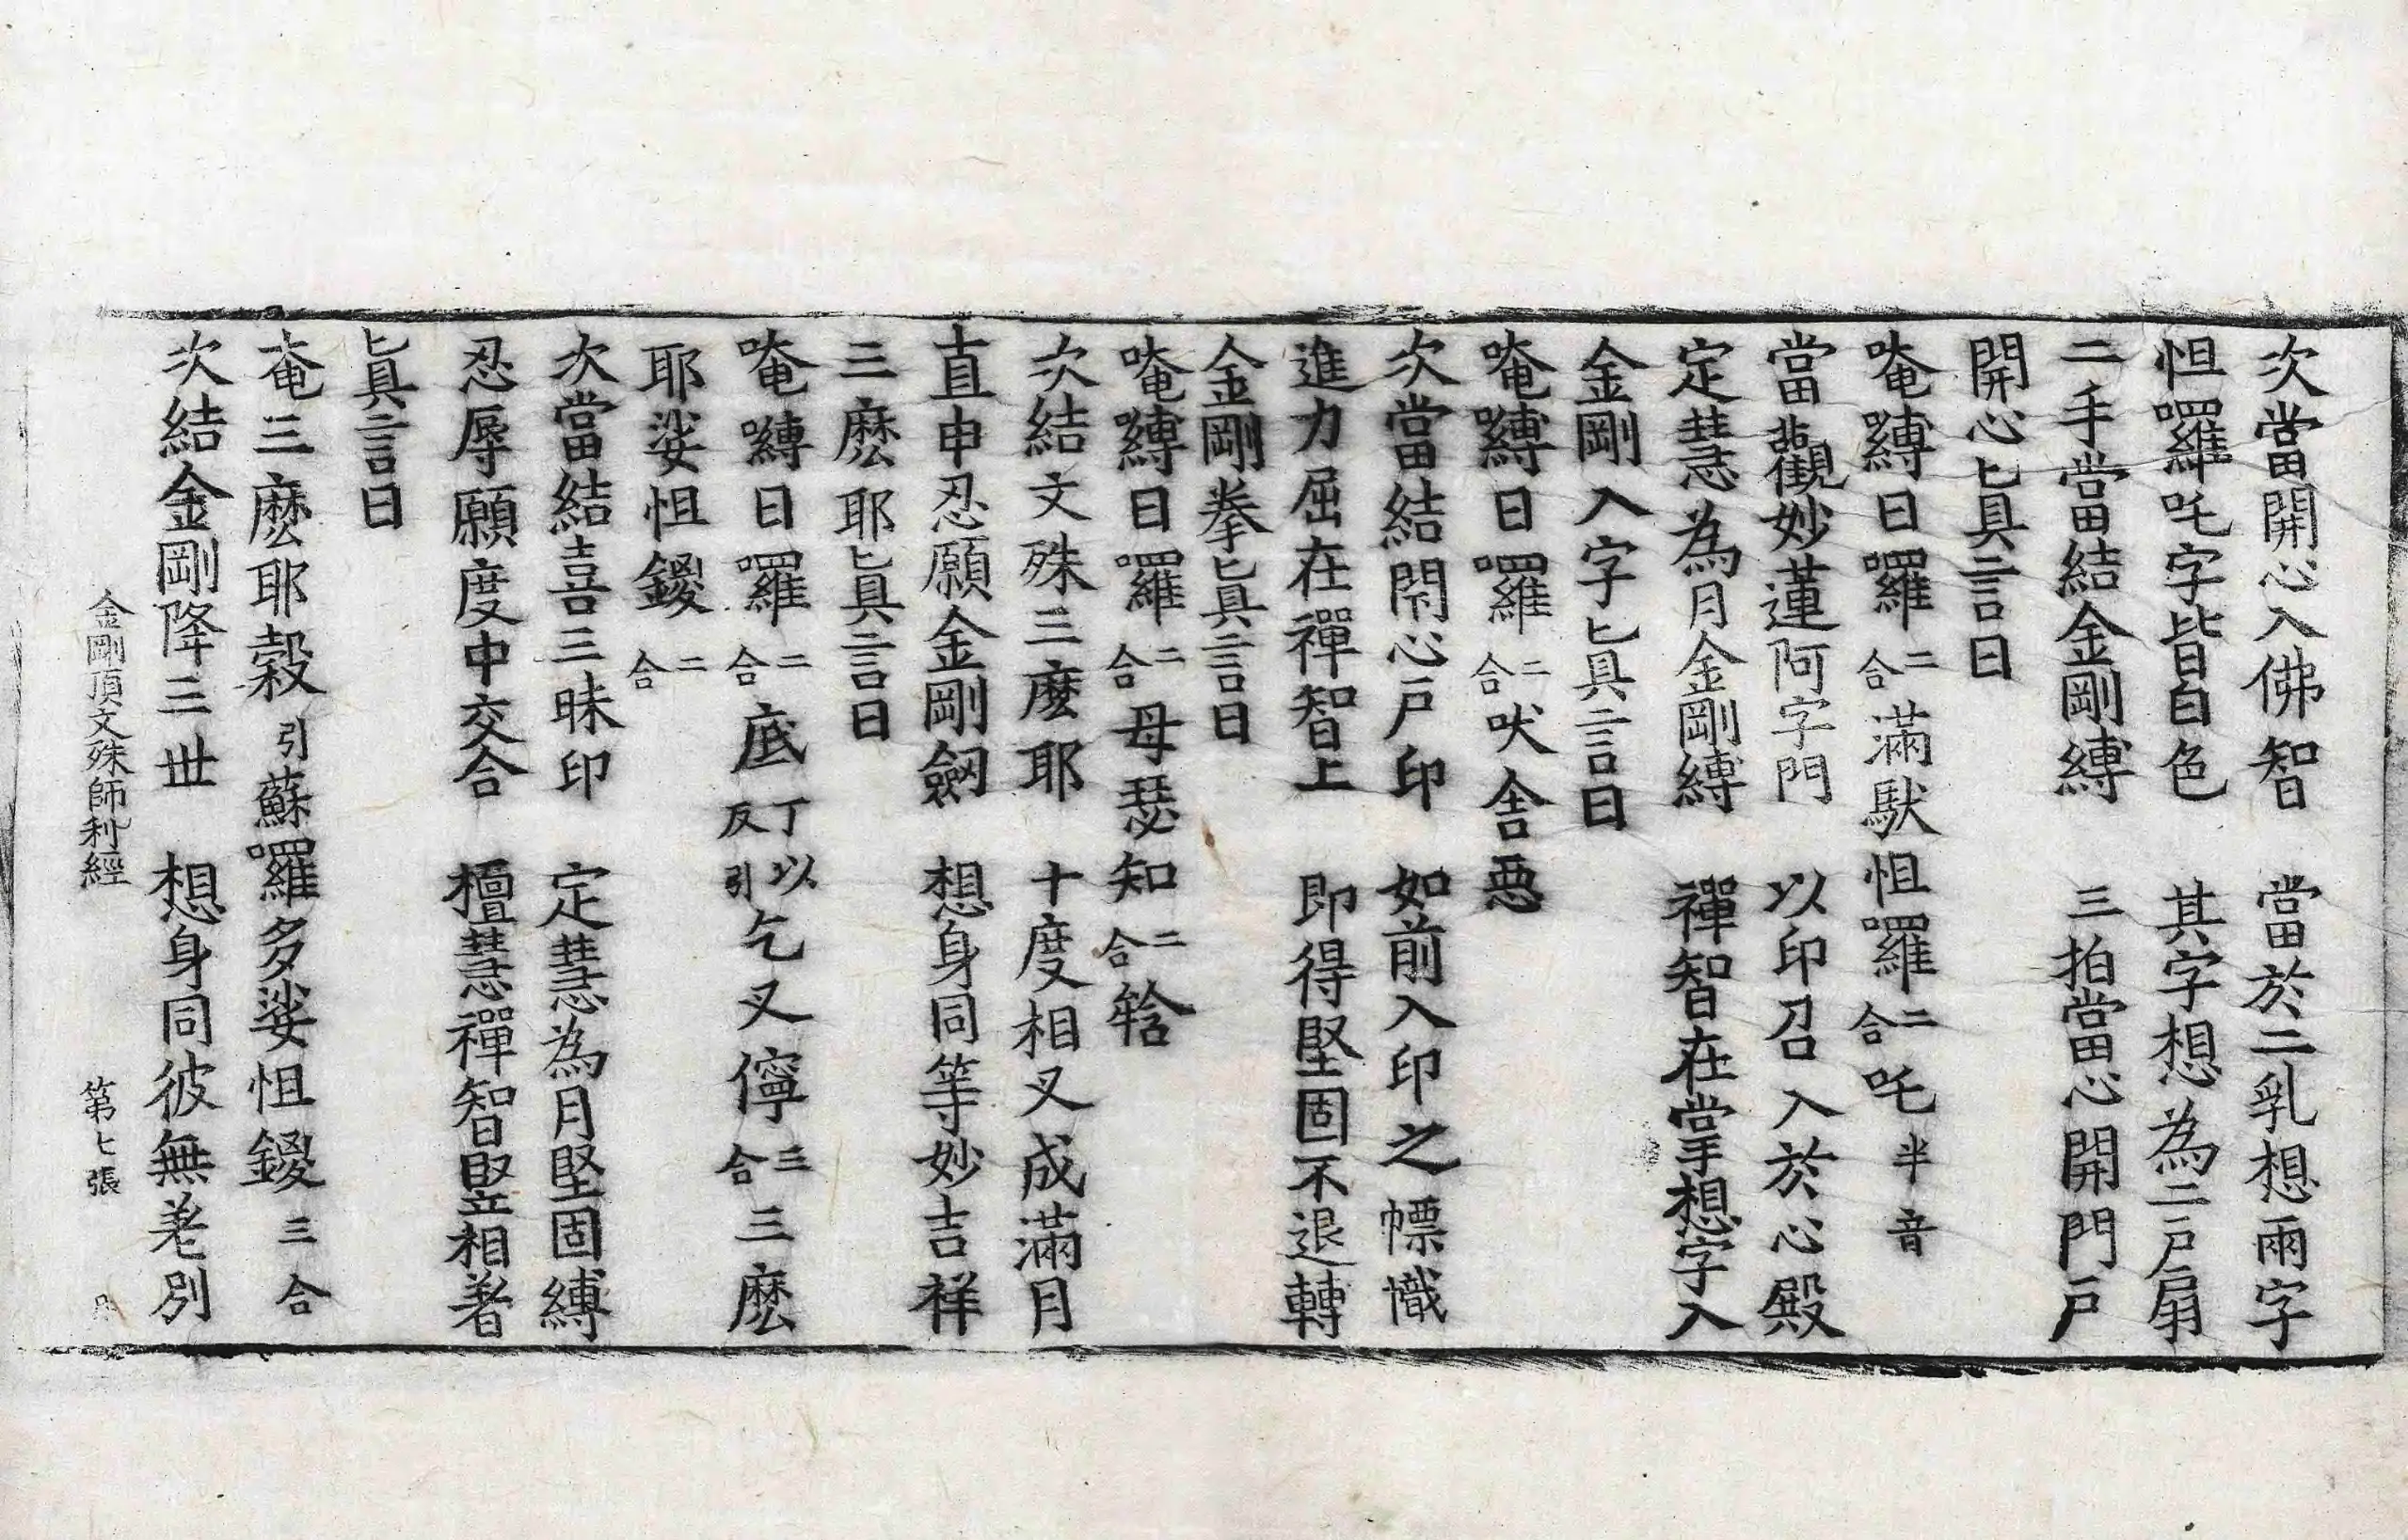 次當開心入佛智　當於二乳想兩字
怛囉吒字皆白色　其字想為二戶扇
二手當結金剛縛　三拍當心開門戶
開心真言曰
唵嚩日囉二合滿馱怛囉二合吒半音
當觀妙蓮阿字門　以印召入於心殿
定慧為月金剛縛　禪智在掌想字入
金剛入字真言曰
唵嚩日囉二合吠舍惡
次當結閇心戶印　如前入印之幖幟
進力屈在禪智上　即得堅固不退轉
金剛拳真言曰
唵嚩日囉二合母瑟知二合輪
次結文殊三麽耶　十度相叉成滿月
直申忍願金剛劔　想身同等妙吉祥
三麽耶真言曰
唵嚩日囉二合底丁以反引乞叉儜三合三麽
耶娑怛鑁二合
次當結喜三昧印　定慧為月堅固縛
忍辱願度中交合　檀慧禪智竪相著
真言曰
奄三麽耶縠引蘇囉多娑怛鑁三合
次結金剛降三世　想身同彼無差別
金剛頂文殊師利經　第七張